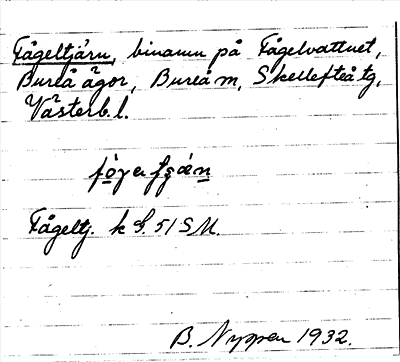 Fågeltjärn, binamn på Fågelvattnet,
Bureå ägor, Bureå m, Skellefteå tg,
Västerb. l.
Fågeltj. k G. 51 SM.
B. Nyman 1932.